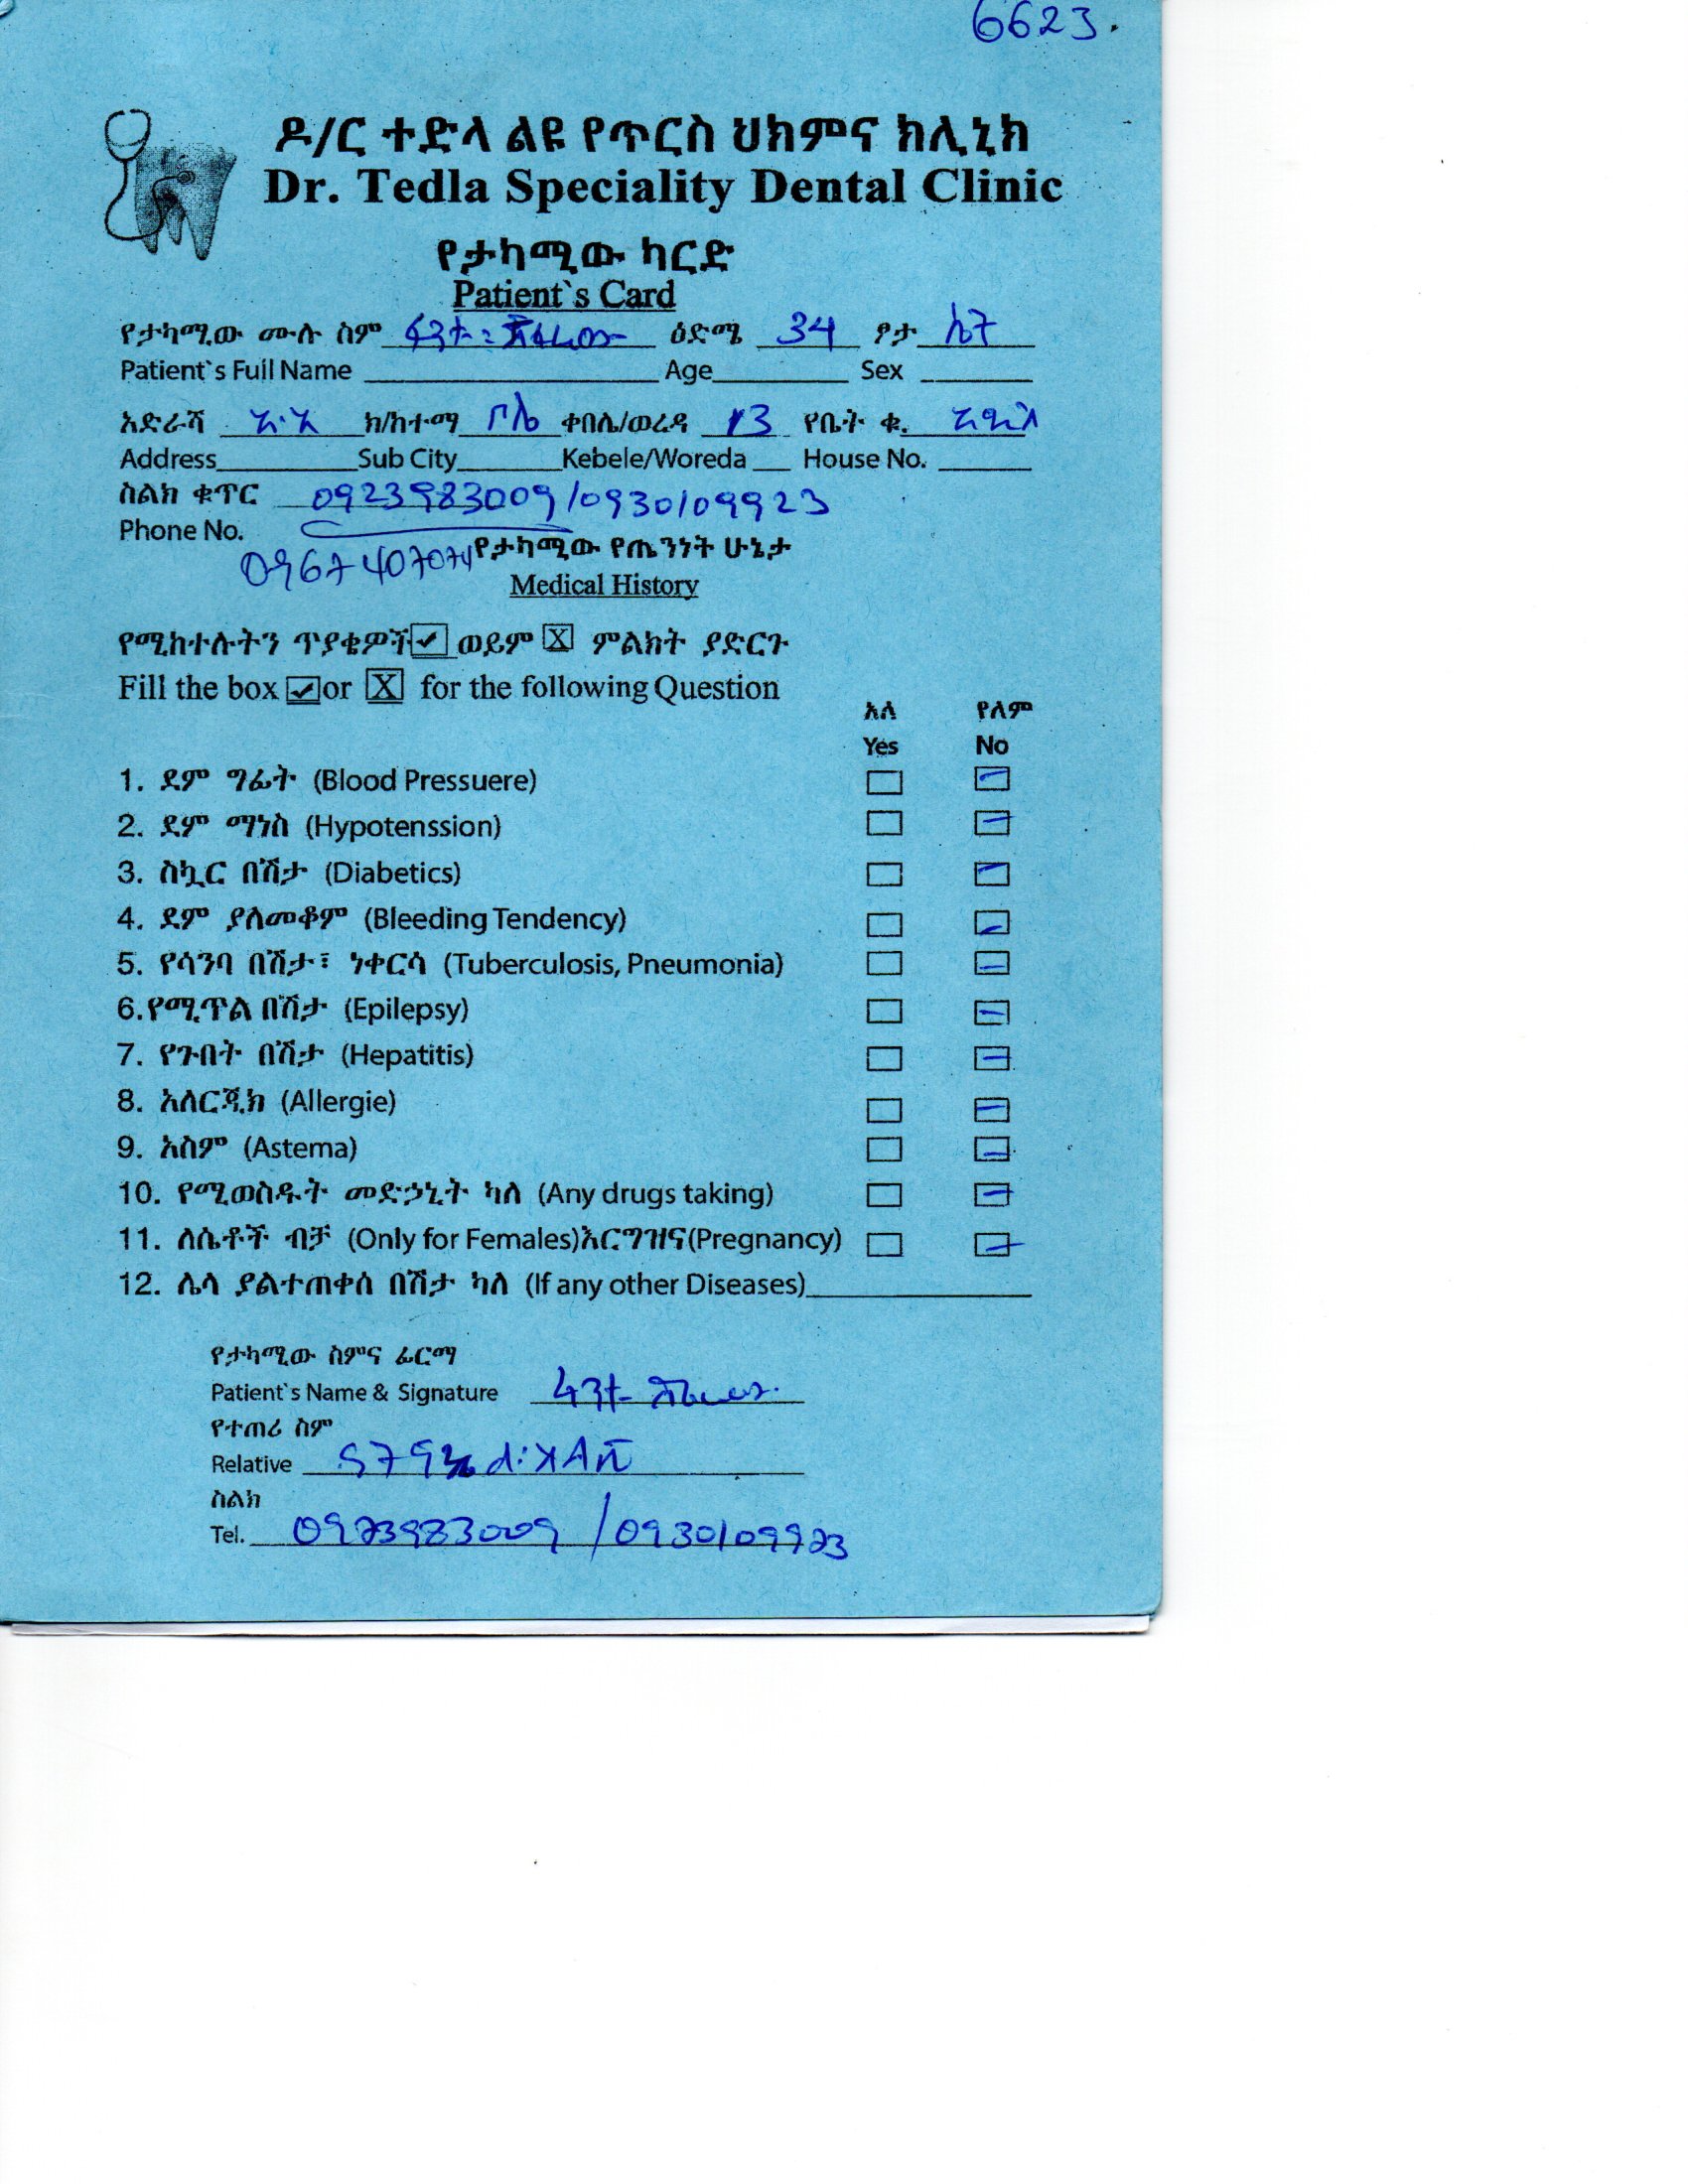 6623.
ዶ/ር ተድላ ልዩ የጥርስ ህክምና ክሊኒክ
Dr. Tedla Speciality Dental Clinic
የታካሚው ካርድ
Patient`s Card
የታካሚው ሙሉ ስም ፋንታ ዕድሜ 34 ፆታ ሴት
Patient`s Full Name Age Sex
አድራሻ አ.አ ክ/ከተማ ቦሌ ቀበሌ/ወረዳ 13 የቤት ቁ. አዲስ
Address Sub City Kebele/Woreda House No.
ስልክ ቁጥር 0923983009/0930109923
Phone No.
0967407074 የታካሚው የጤንነት ሁኔታ
Medical History
የሚከተሉትን ጥያቄዎች ✓ ወይም X ምልክት ያድርጉ
Fill the box ✓ or X for the following Question
አለ የለም
Yes No
1. ደም ግፊት (Blood Pressuere)
2. ደም ማነስ (Hypotenssion)
3. ስኳር በሽታ (Diabetics)
4. ደም ያለመቆም (Bleeding Tendency)
5. የሳንባ በሽታ፣ ነቀርሳ (Tuberculosis, Pneumonia)
6.የሚጥል በሽታ (Epilepsy)
7. የጉበት በሽታ (Hepatitis)
8. አለርጂክ (Allergie)
9. አስም (Astema)
10. የሚወስዱት መድኃኒት ካለ (Any drugs taking)
11. ለሴቶች ብቻ (Only for Females)እርግዝና(Pregnancy)
12. ሌላ ያልተጠቀሰ በሽታ ካለ (If any other Diseases)
የታካሚው ስምና ፊርማ
Patient`s Name & Signature ፋንታ
የተጠሪ ስም
Relative
ስልክ
Tel. 0923983009 /0930109923